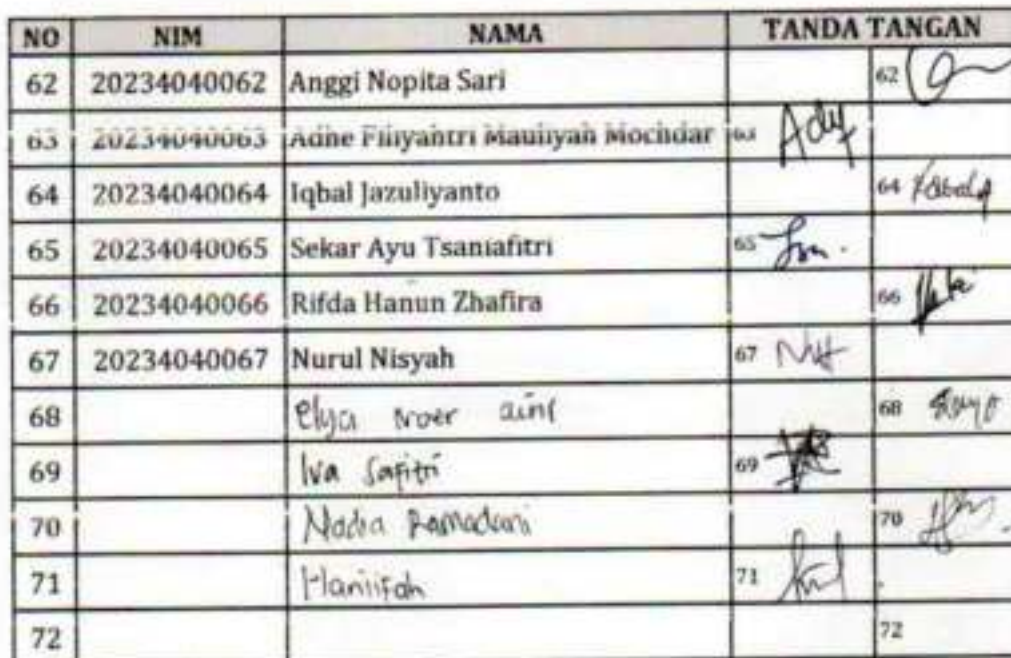 NO NIM NAMA TANDA TANGAN
62 20234040062 Anggi Nopita Sari 62
63 20234040063 Adhe Fitiyantri Mauliyah Mochdar 63
64 20234040064 Iqbal Jazuliyanto 64
65 20234040065 Sekar Ayu Tsaniafitri 65
66 20234040066 Rifda Hanun Zhafira 66
67 20234040067 Nurul Nisyah 67
68 Elya Noer aini 68
69 Iva Safitri 69
70 Nadia Ramadani 70
71 Haniifah 71
72 72